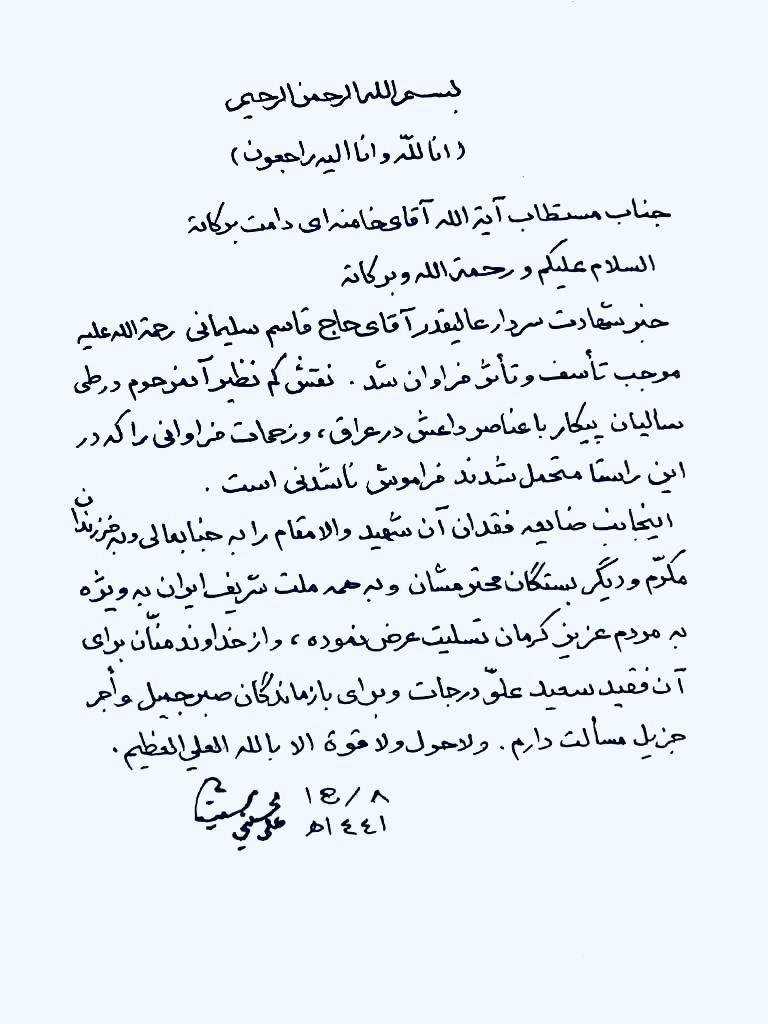 بسم الله الرحمن الرحیم
(انا للّه و انا الیه راجعون)
جناب مستطاب آیة الله آقای خامنه‌ای دامت برکاته
السلام علیکم و رحمة الله و برکاته
خبر شهادت سردار عالیقدر آقای حاج قاسم سلیمانی رحمة الله علیه
موجب تأسف و تأثر فراوان شد. نقش کم نظیر آنمرحوم در طی
سالیان پیکار با عناصر داعش در عراق، و زحمات فراوانی را که در
این راستا متحمل شدند فراموش ناشدنی است.
اینجانب ضایعه فقدان آن شهید والامقام را به جنابعالی و به فرزندان
مکرّم و دیگر بستگان محترمشان و به همه ملت شریف ایران به ویژه
به مردم عزیز کرمان تسلیت عرض نموده، و از خداوند منّان برای
آن فقید سعید علوّ درجات و برای بازماندگان صبر جمیل و أجر
جزیل مسألت دارم. ولا حول ولا قوة الا بالله العلي العظیم.
٨/ ١ج
١٤٤١ه
علي الحسيني